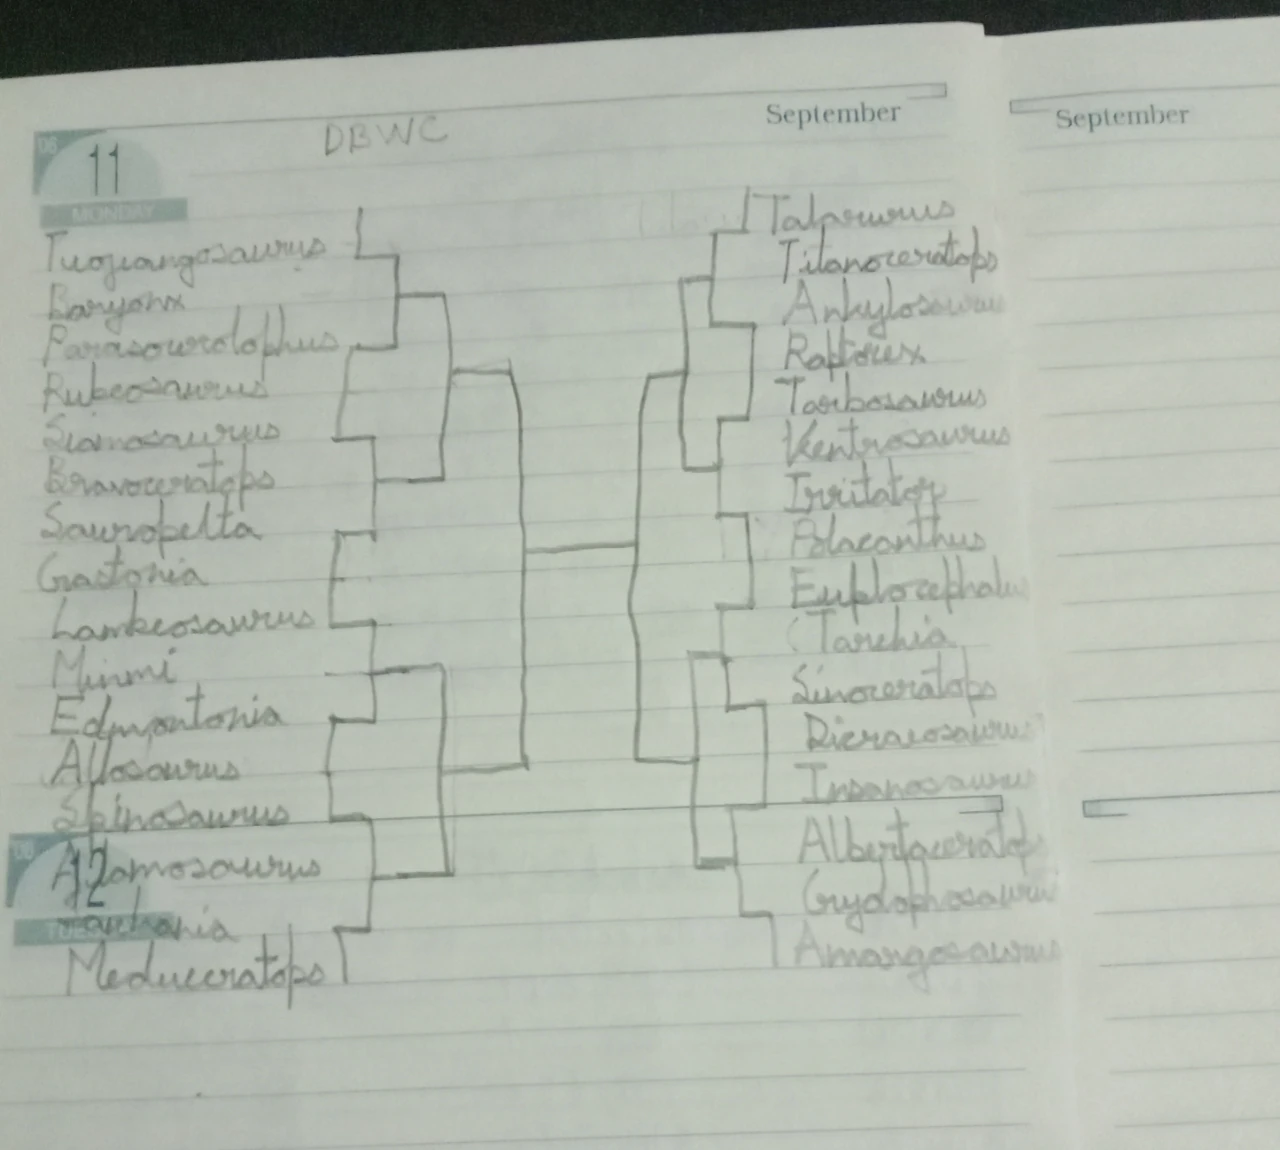 September
September
DBWC
08
11
MONDAY
Tuojiangosaurus
Baryonx
Parasourolophus
Rubeosaurus
Siamosaurus
Bravoceratops
Sauropelta
Gastonia
Lambeosaurus
Minmi
Edmontonia
Allosaurus
Spinosaurus
12
Alamosaurus
Meduceratops
Talarurus
Titanoceratops
Ankylosaurus
Raptorex
Tarbosaurus
Kentrosaurus
Irritator
Polacanthus
Euplocephalus
Tarchia
Sinoceratops
Dicraeosaurus
Albertaceratops
Cryolophosaurus
Amargosaurus